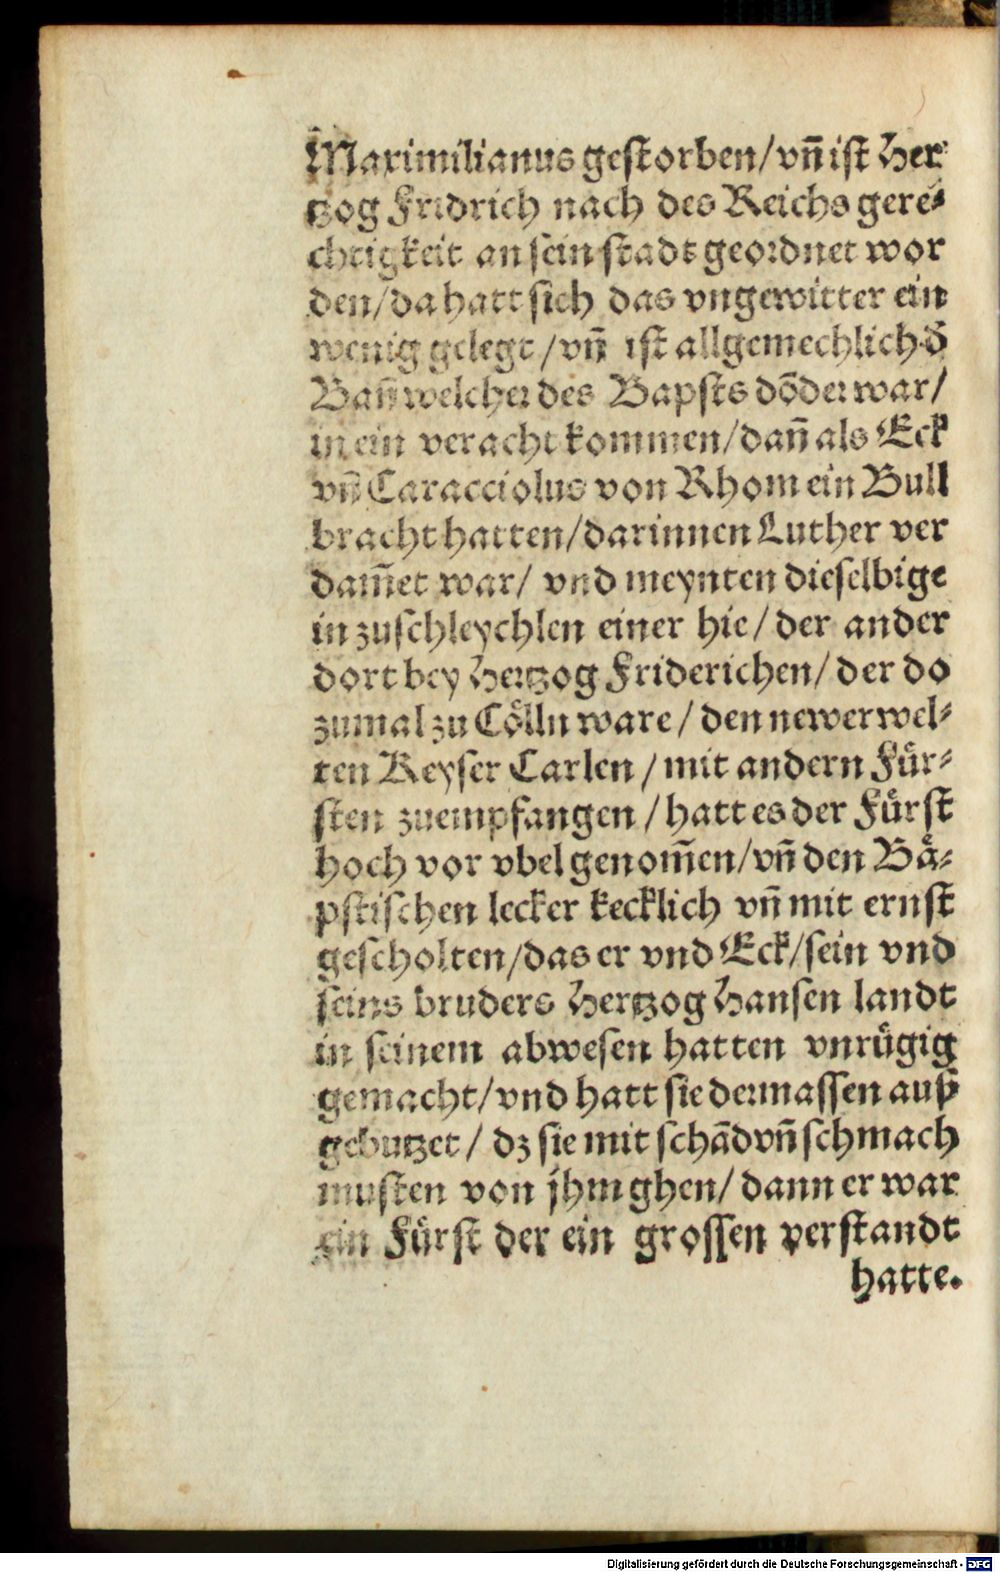 Maximilianus gestorben/vn̄ ist Her
tzog Fridrich nach des Reichs gere⸗
chtigkeit an sein stadt geordnet wor
den/da hatt sich das vngewitter ein
wenig gelegt/vn̄ ist allgemechlich d̕
Ban̄ welcher des Bapsts dōder war/
in ein veracht kommen/dan̄ als Eck
vn̄ Caracciolus von Rhom ein Bull
bracht hatten/darinnen Luther ver
dam̄et war/ vnd meynten dieselbige
in zuschleychlen einer hie/der ander
dort bey Hertzog Friderichen/der do
zumal zu Cöͤlln ware/den newerwel⸗
ten Keyser Carlen/mit andern Fuͤr⸗
sten zuempfangen/hatt es der Fuͤrst
hoch vor vbel genom̄en/vn̄ den Baͤ⸗
pstischen lecker kecklich vn̄ mit ernst
gescholten/das er vnd Eck/sein vnd
seins bruders Hertzog Hansen landt
in seinem abwesen hatten vnruͤgig
gemacht/vnd hatt sie dermassen auß
gebutzet/ dz sie mit schād vn̄ schmach
musten von jhm ghen/dann er war
ein Fuͤrst der ein grossen verstandt
hatte.
Digitalisierung gefördert durch die Deutsche Forschungsgemeinschaft - DFG